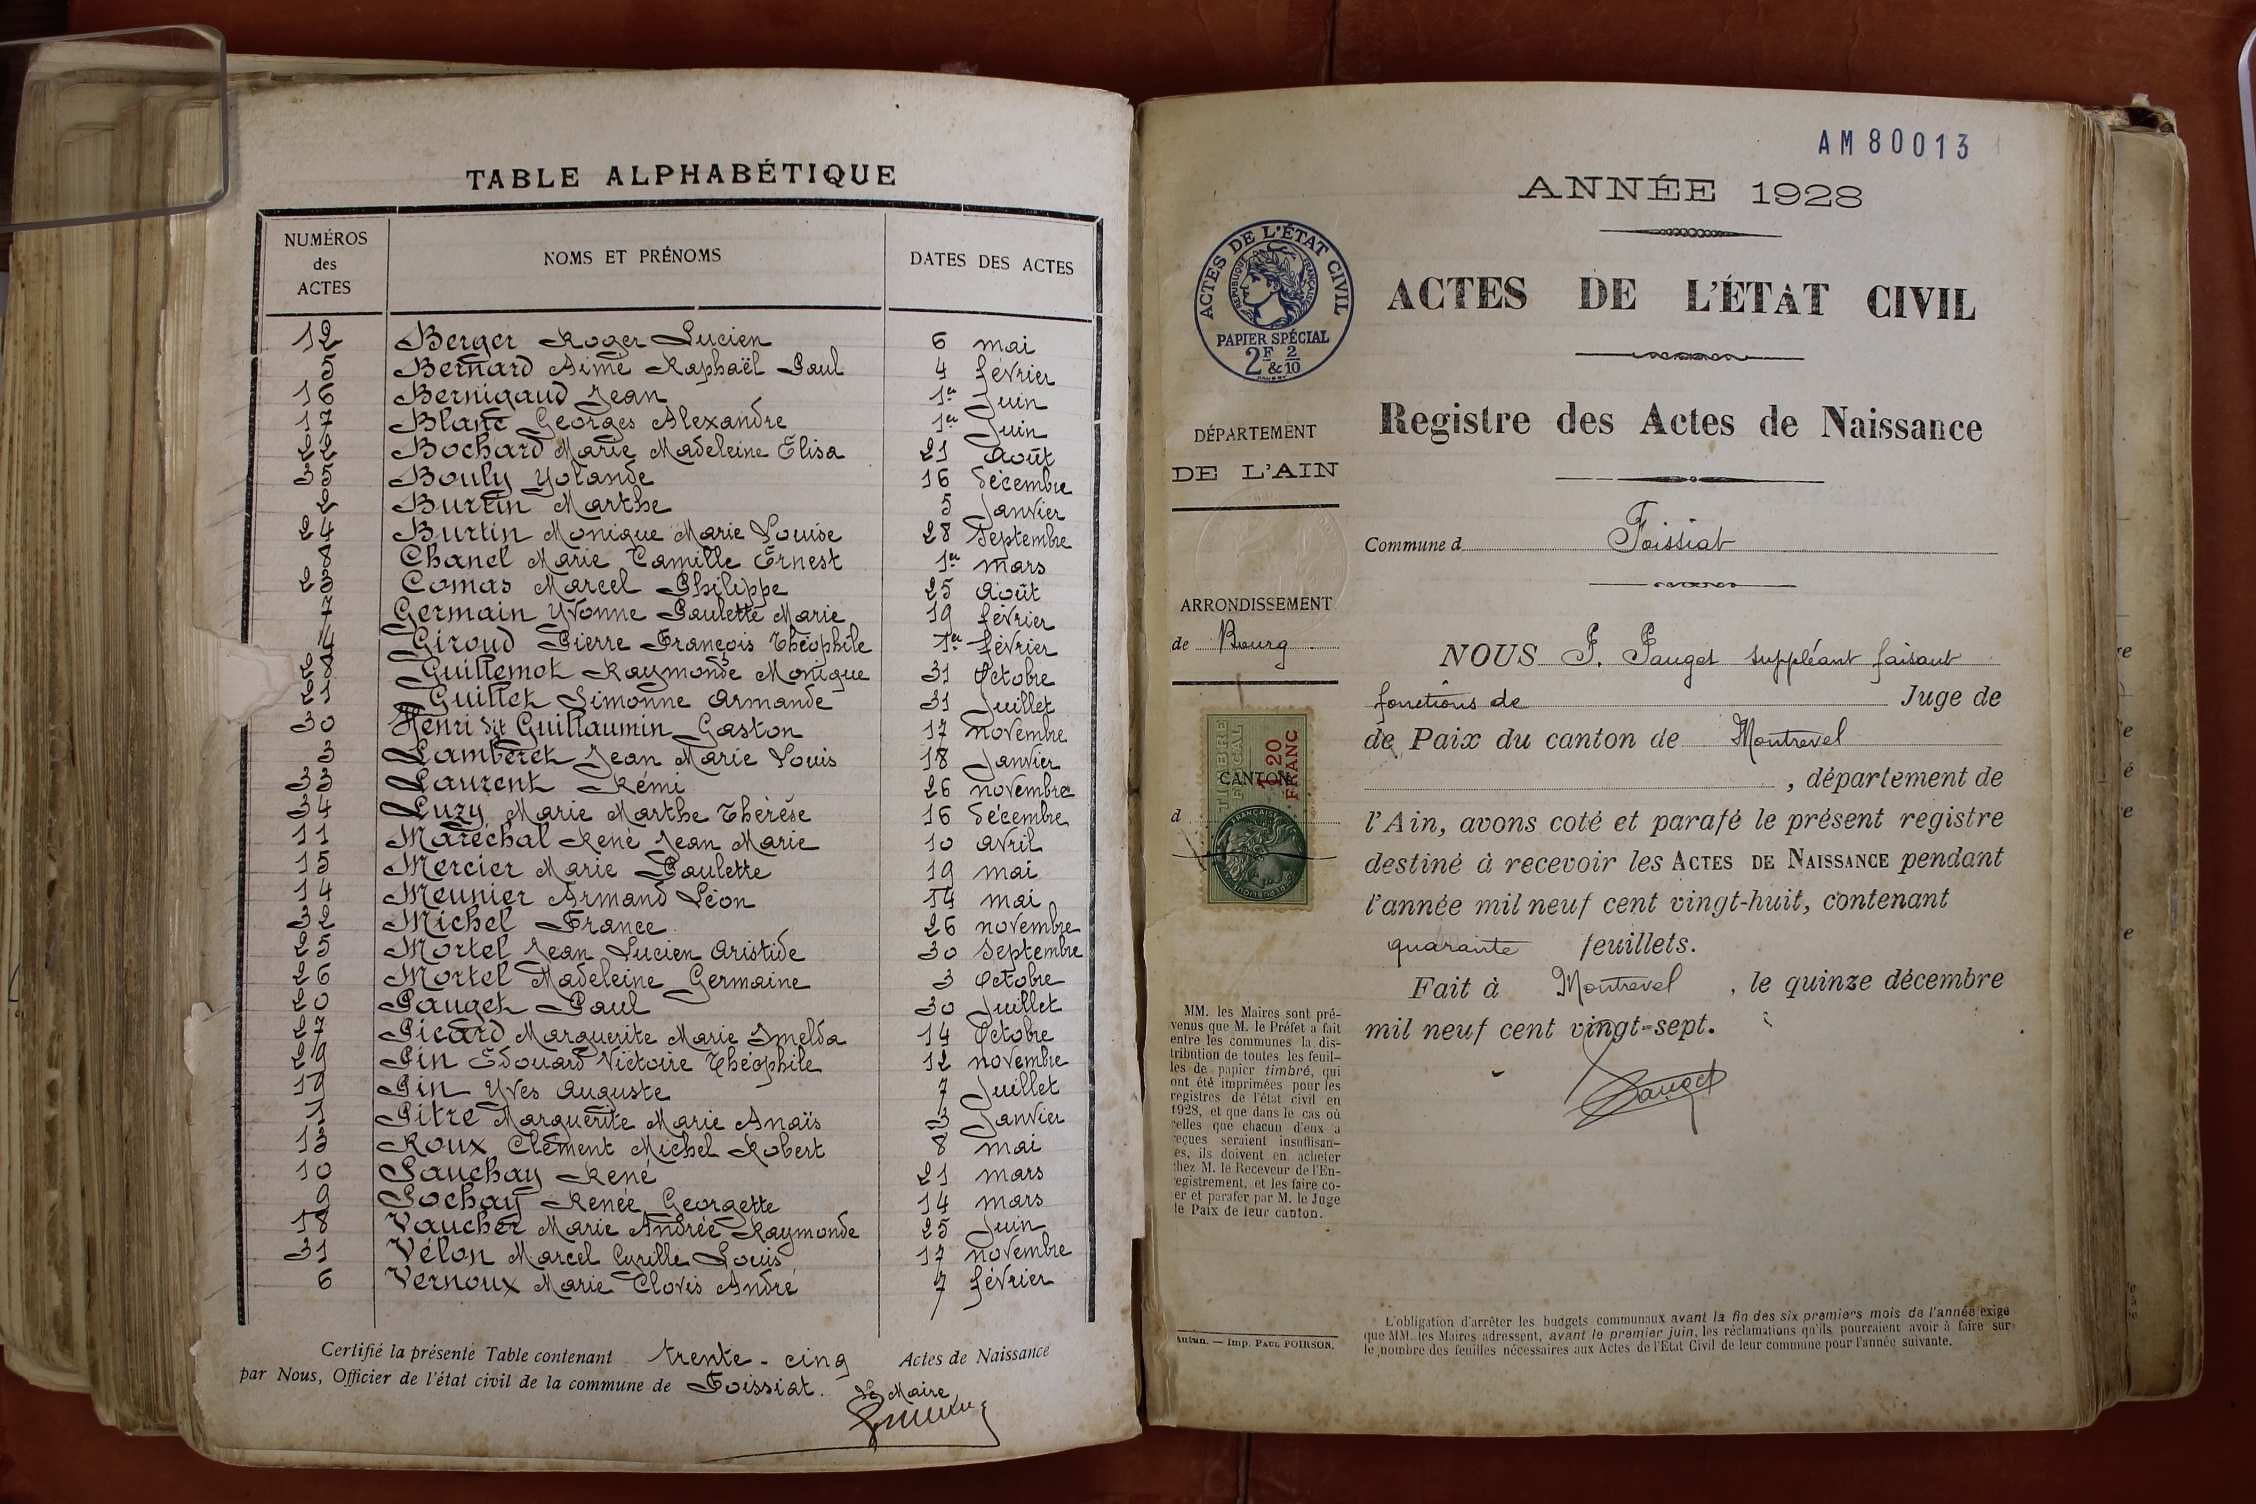 TABLE ALPHABÉTIQUE
NUMÉROS des ACTES NOMS ET PRÉNOMS DATES DES ACTES
12 Berger Roger Lucien 6 mai
5 Bernard Aimé Raphaël Paul 4 février
16 Bernigaud Jean 1er Juin
17 Blanc Georges Alexandre 1er Juin
22 Bochard Marie Madeleine Elisa 21 Août
35 Bouly Yolande 16 décembre
2 Burtin Marthe 5 Janvier
24 Burtin Monique Marie Louise 28 Septembre
8 Chanel Marie Camille Ernest 1er mars
23 Comas Marcel Philippe 25 Août
7 Germain Yvonne Paulette Marie 19 février
4 Giroud Pierre François Théophile 1er février
28 Guillemot Raymonde Monique 31 Octobre
21 Guillet Simonne Armande 31 Juillet
30 Henri dit Guillaumin Gaston 17 novembre
3 Lambéret Jean Marie Louis 18 Janvier
33 Laurent Rémi 26 novembre
34 Luzy Marie Marthe Thérèse 16 décembre
11 Maréchal René Jean Marie 10 avril
15 Mercier Marie Paulette 19 mai
14 Meunier Armand Léon 14 mai
32 Michel France 26 novembre
25 Mortel Jean Lucien Aristide 30 Septembre
26 Mortel Madeleine Germaine 3 Octobre
20 Pauget Paul 30 Juillet
27 Picard Marguerite Marie Imelda 14 Octobre
29 Pin Edouard Victoire Théophile 12 novembre
19 Pin Yves Auguste 7 Juillet
1 Pitre Marguerite Marie Anaïs 3 Janvier
13 Roux Clément Michel Robert 8 mai
10 Sauchay René 21 mars
9 Sochay Renée Georgette 14 mars
18 Vaucher Marie Andrée Raymonde 25 Juin
31 Vélon Marcel Cyrille Louis 17 novembre
6 Vernoux Marie Clovis André 7 février
Certifié la présente Table contenant trente-cinq Actes de Naissance
par Nous, Officier de l'état civil de la commune de Foissiat.
Le Maire
AM80013
ANNÉE 1928
ACTES DE L'ÉTAT CIVIL
RÉPUBLIQUE FRANÇAISE
PAPIER SPÉCIAL
2F & 2/10
ACTES DE L'ÉTAT CIVIL
Registre des Actes de Naissance
DÉPARTEMENT
DE L'AIN
Commune d Foissiat
ARRONDISSEMENT
de Bourg
NOUS P. Pauget suppléant faisant
fonctions de Juge de
de Paix du canton de Montrevel
, département de
l'Ain, avons coté et parafé le présent registre
destiné à recevoir les ACTES DE NAISSANCE pendant
l'année mil neuf cent vingt-huit, contenant
quarante feuillets.
Fait à Montrevel, le quinze décembre
mil neuf cent vingt-sept.
Pauget
TIMBRE FISCAL
1.20 FRANC
CANTON
d
MM. les Maires sont pré-
venus que M. le Préfet a fait
entre les communes la dis-
tribution de toutes les feuil-
les de papier timbré, qui
ont été imprimées pour les
registres de l'état civil en
1928, et que dans le cas où
celles que chacun d'eux a
reçues seraient insuffisan-
es, ils doivent en acheter
chez M. le Receveur de l'En-
registrement, et les faire co-
er et parafer par M. le Juge
le Paix de leur canton.
Autun. — Imp. PAUL POIRSON.
L'obligation d'arrêter les budgets communaux avant la fin des six premiers mois de l'année exige
que MM. les Maires adressent, avant le premier juin, les réclamations qu'ils pourraient avoir à faire sur
le nombre des feuilles nécessaires aux Actes de l'Etat Civil de leur commune pour l'année suivante.